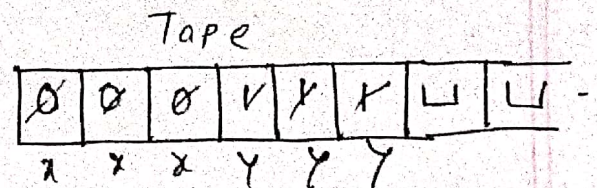 Tape
0 0 0 1 1 1 ⊔ ⊔ -
x x x y y y